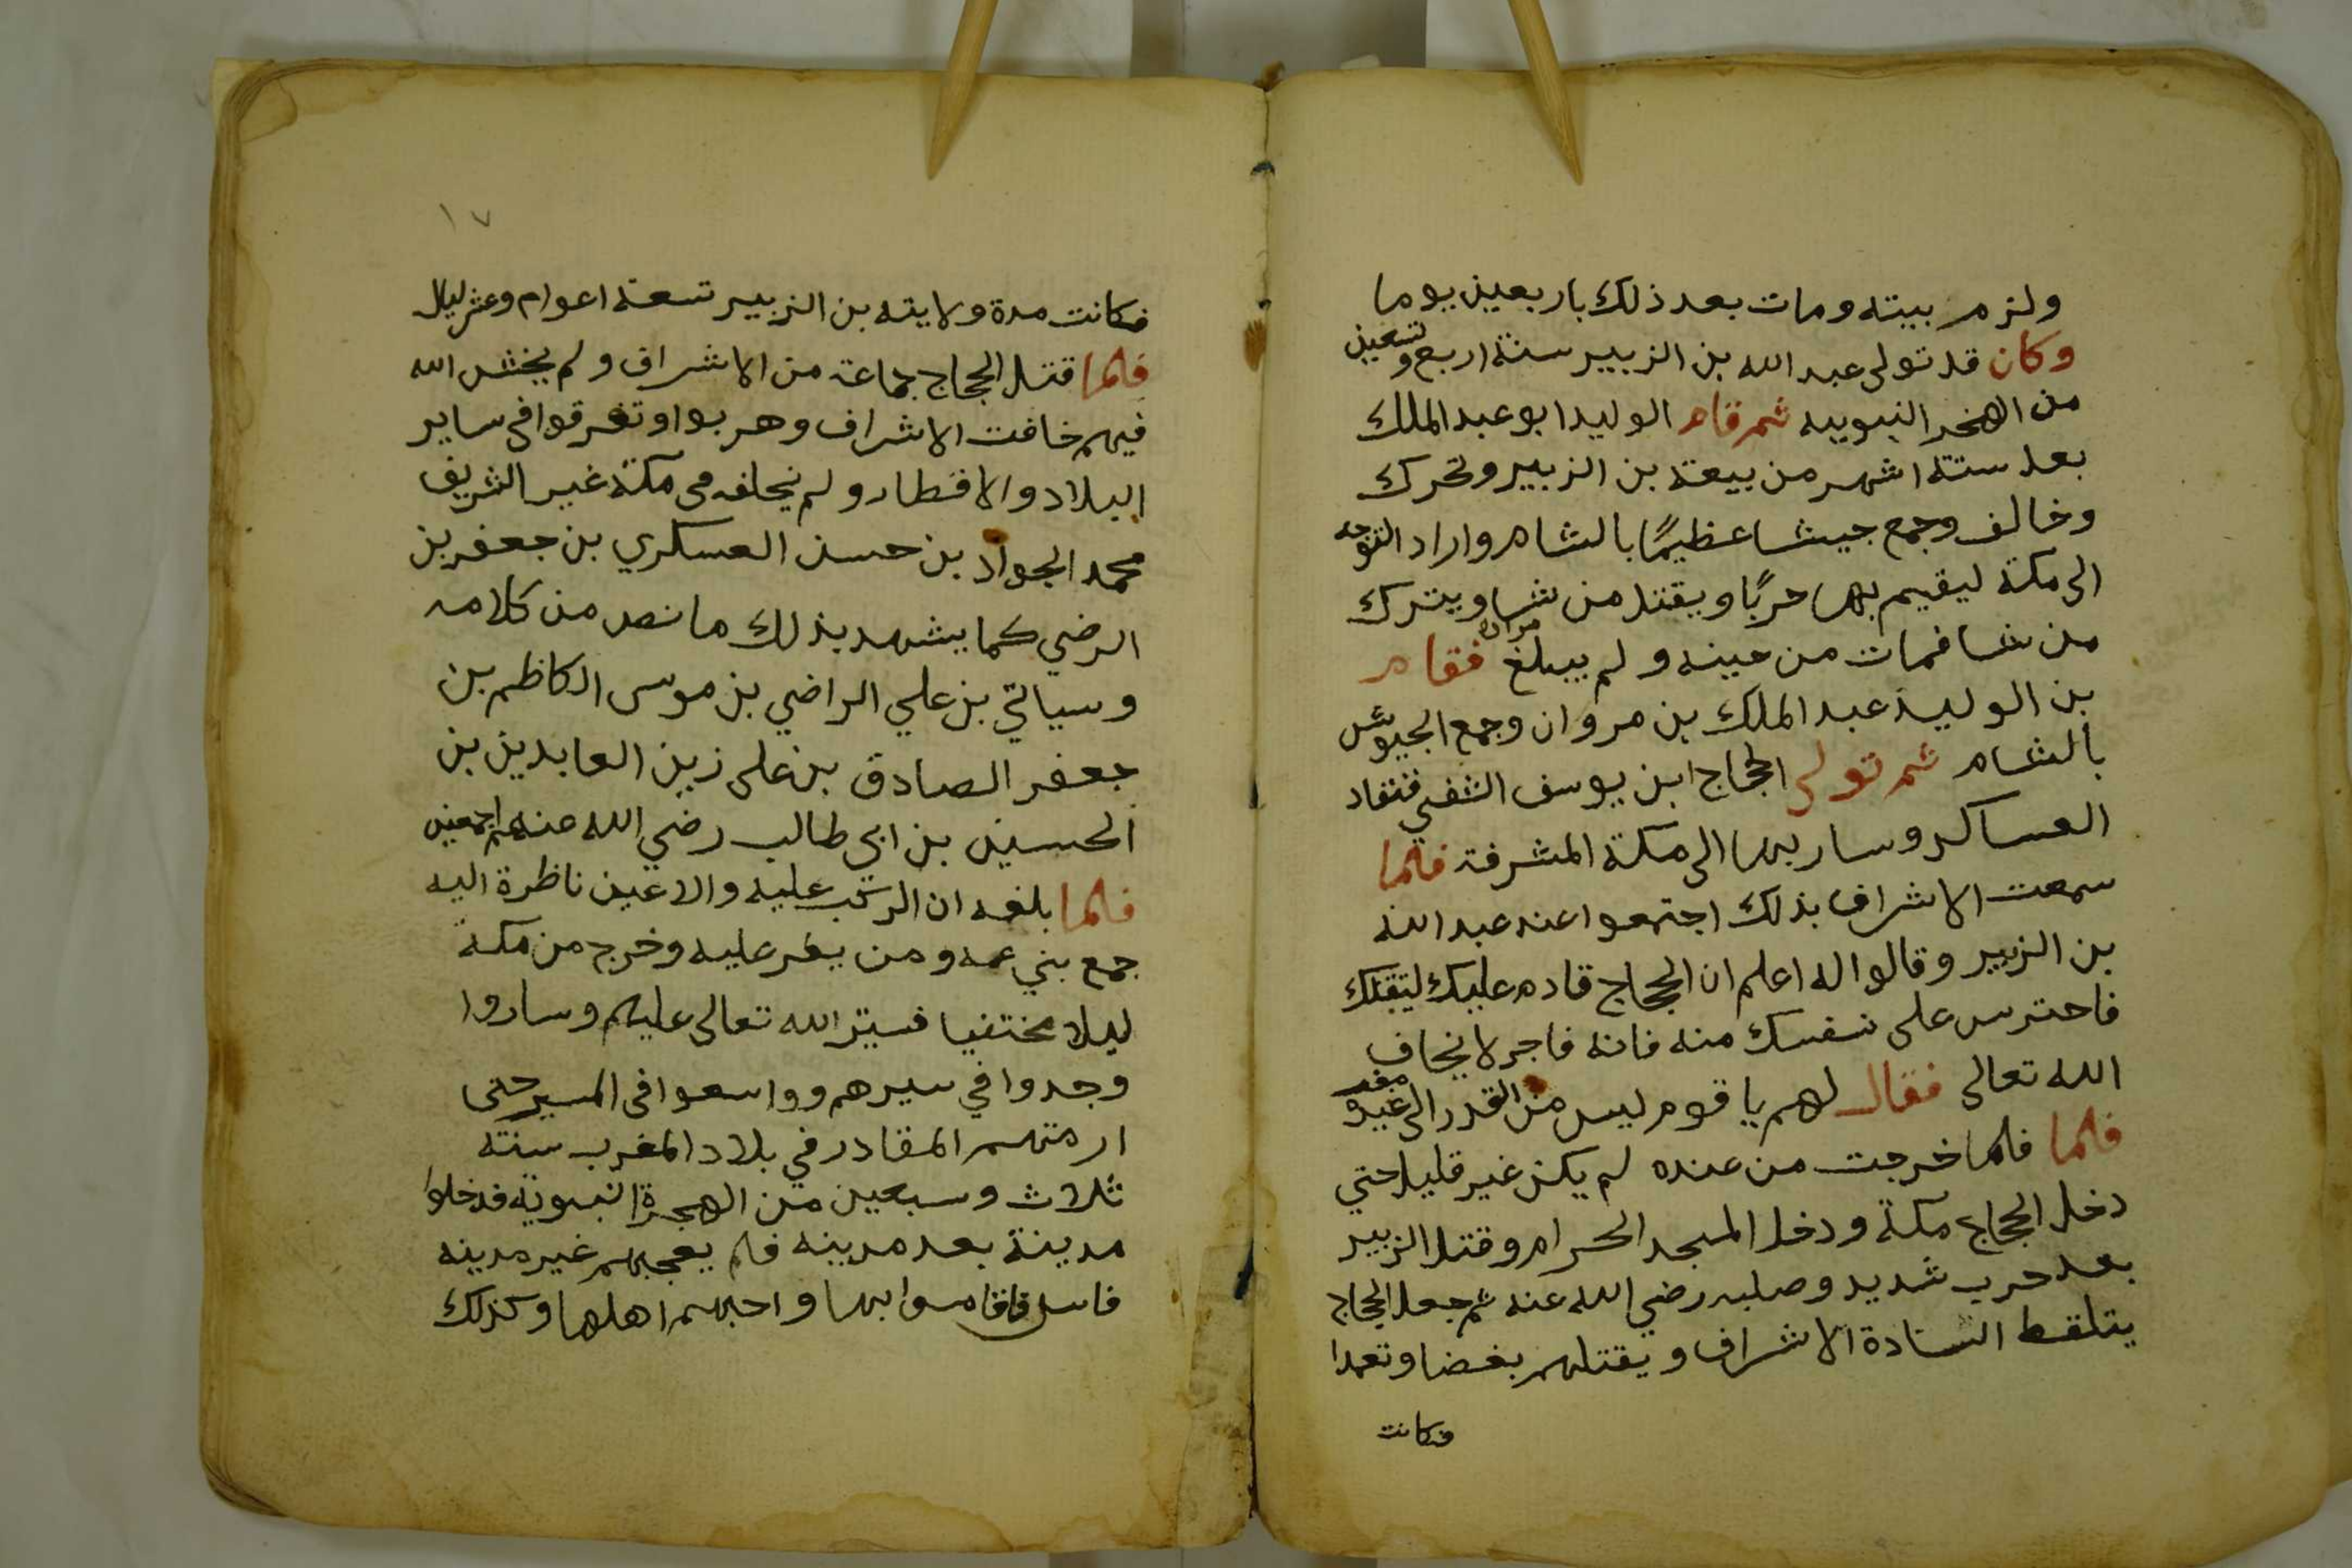 ولزم بيته ومات بعد ذلك باربعين يوما
وكان قد تولى عبد الله بن الزبير سنة اربع وتسعين
من الهجر النبويه ثم قام الوليد ابو عبد الملك
بعد ستة اشهر من بيعة بن الزبير وتحرك
وخالف وجمع جيشا عظيمًا بالشام واراد التوجه
الى مكة ليقيم بها حربًا ويقتل من شا ويترك
من شا فمات من حينه ولم يبلغ مراده فقام
بن الوليد عبد الملك بن مروان وجمع الجيوش
بالشام ثم تولى الحجاج ابن يوسف الثقفي فتقاد
العساكر وسار بها الى مكة المشرفة فلما
سمعت الاشراف بذلك اجتمعوا عند عبد الله
بن الزبير وقالوا له اعلم ان الحجاج قادم عليك ليقتلك
فاحترس على نفسك منه فانه فاجر لا يخاف
الله تعالى فقال لهم يا قوم ليس من القدر الى عبيد مفر
فلما فلما خرجت من عنده لم يكن غير قليلا حتي
دخل الحجاج مكة ودخل المسجد الحرام وقتل الزبير
بعد حرب شديد وصلبه رضي الله عنه ثم جعل الحجاج
يتلقط السادة الاشراف ويقتلهم بغضا وتعمدا
فكانت
١٧
فكانت مدة ولايته بن الزبير تسعة اعوام وعشر ليال
فلما قتل الحجاج جماعة من الاشراف ولم يخش الله
فيهم خافت الاشراف وهربوا وتفرقوا في ساير
البلاد والاقطار ولم يخلف في مكة غير الشريف
محمد الجواد بن حسن العسكري بن جعفر بن
الرضي كما يشهد بذلك ما نصه من كلامه
وسياتي بن علي الراضي بن موسى الكاظم بن
جعفر الصادق بن على زين العابدين بن
الحسين بن ابي طالب رضي الله عنهم اجمعين
فلما بلغه ان الركب عليه والاعين ناظرة اليه
جمع بني عمه ومن يعز عليه وخرج من مكة
ليلا مختفيا فستر الله تعالى عليهم وساروا
وجدوا في سيرهم وواسعوا في المسير حتى
ارمتهم المقادر في بلاد المغرب سنة
ثلاث وسبعين من الهجرة النبوية فدخلوا
مدينة بعد مدينه فلم يعجبهم غير مدينه
فاس فاقاموا بها واحبهم اهلها وكذلك